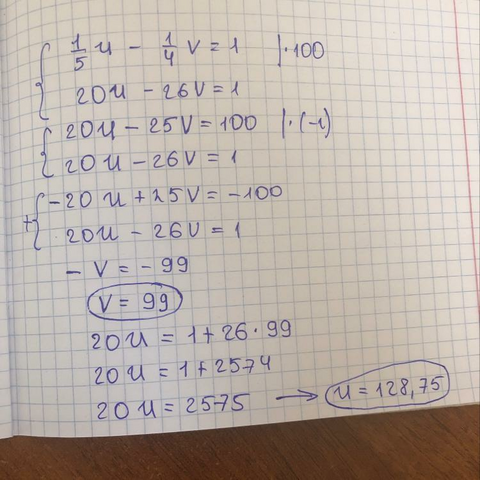 1/5 u - 1/4 v = 1 |·100
20u - 26v = 1
20u - 25v = 100 |·(-1)
20u - 26v = 1
+ -20u + 25v = -100
20u - 26v = 1
- v = - 99
v = 99
20u = 1 + 26·99
20u = 1 + 2574
20u = 2575 → u = 128,75